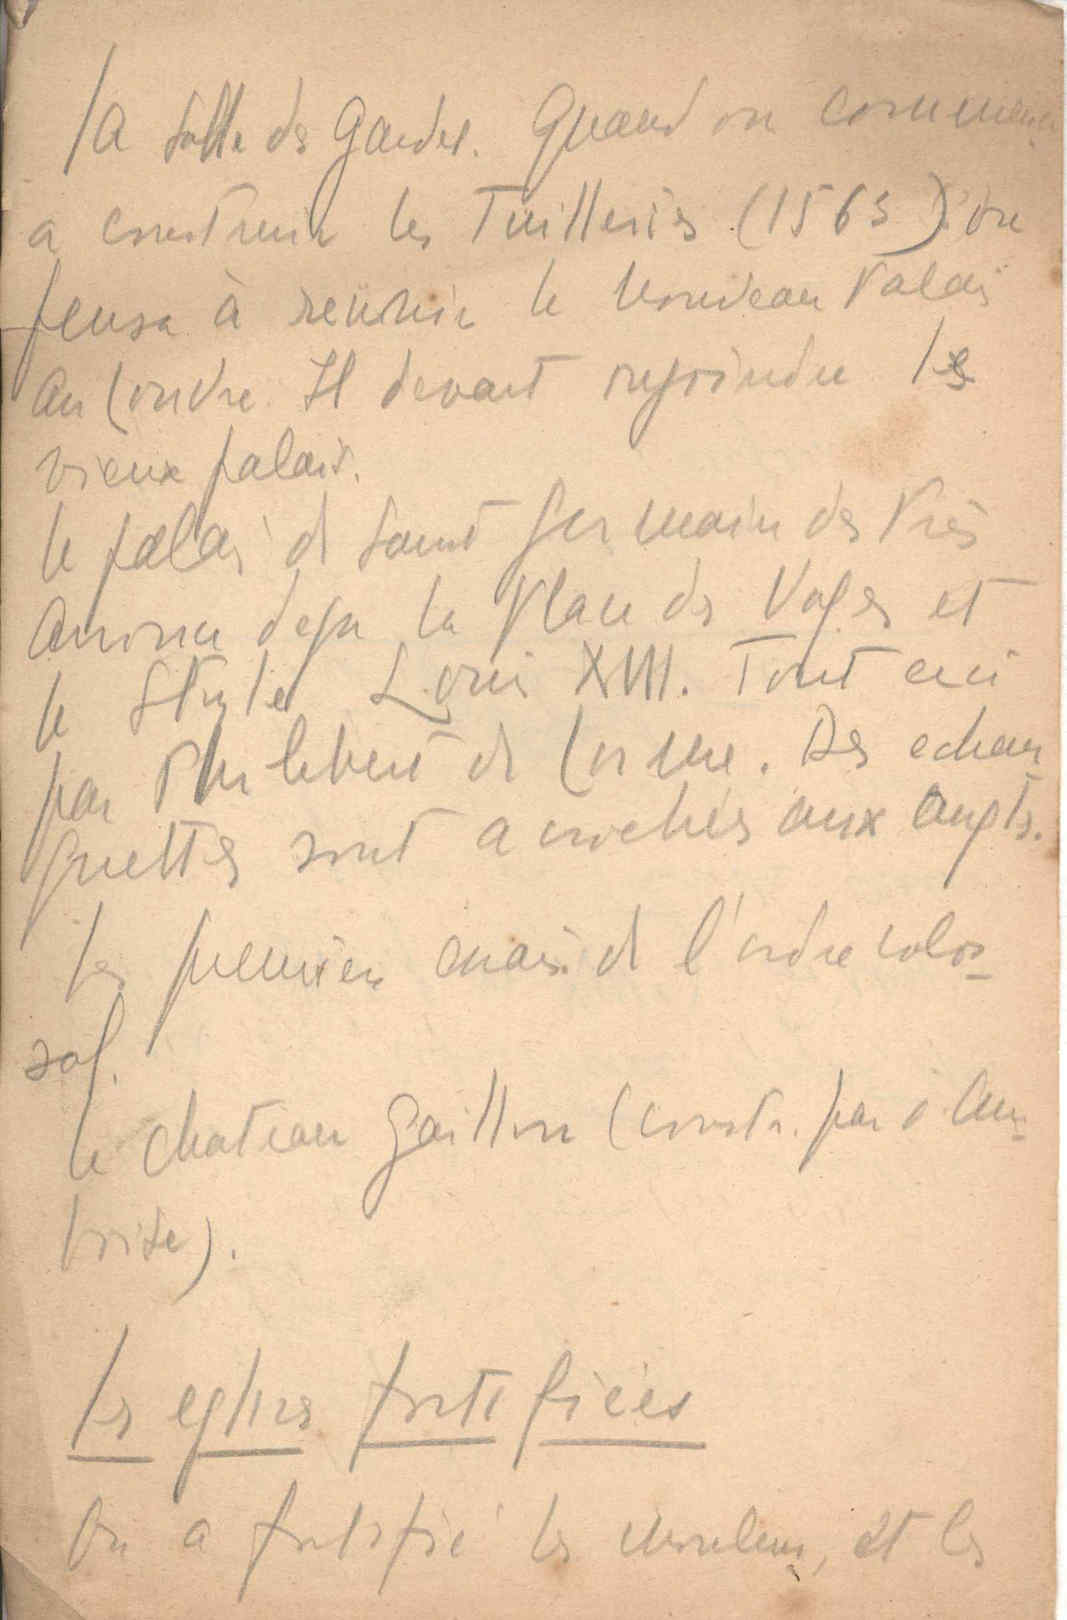 la salle des Gardes. Quand on commença
a construire les Tuilleries (1563) on
pensa à réunir le nouveau Palais
au Louvre. Il devait rejoindre le
vieux palais.
le palais de Saint Germain des Près
annonce deja la Place des Vosges et
le Style Louis XIII. Tout ceci
par Philebert de Lorme. Des echau
guettes sont acrochés aux angles.
les premiers essais de l'ordre colos-
sal.
le chateau Gaillon (constr. par d'Am-
boise).
les eglises fortifiées
On a fortifié les moulins, et les